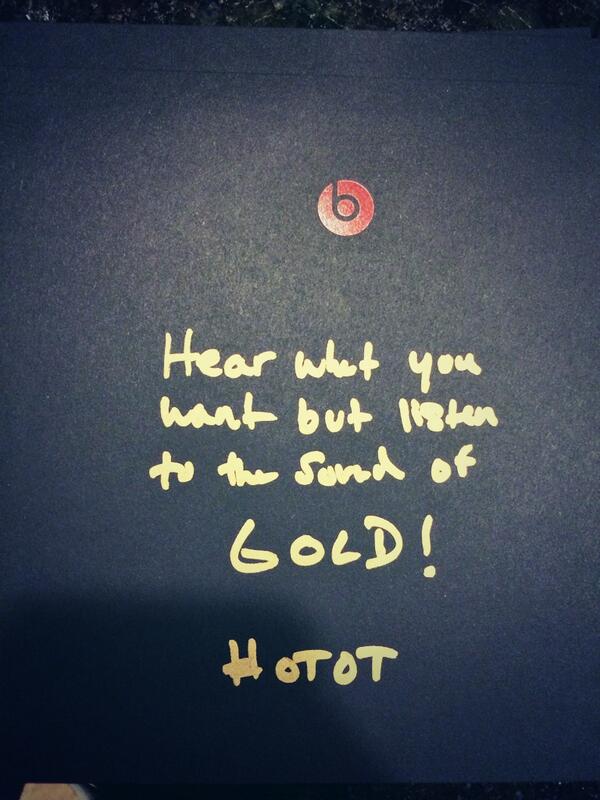 b
Hear what you
want but listen
to the sound of
GOLD!
#OTOT